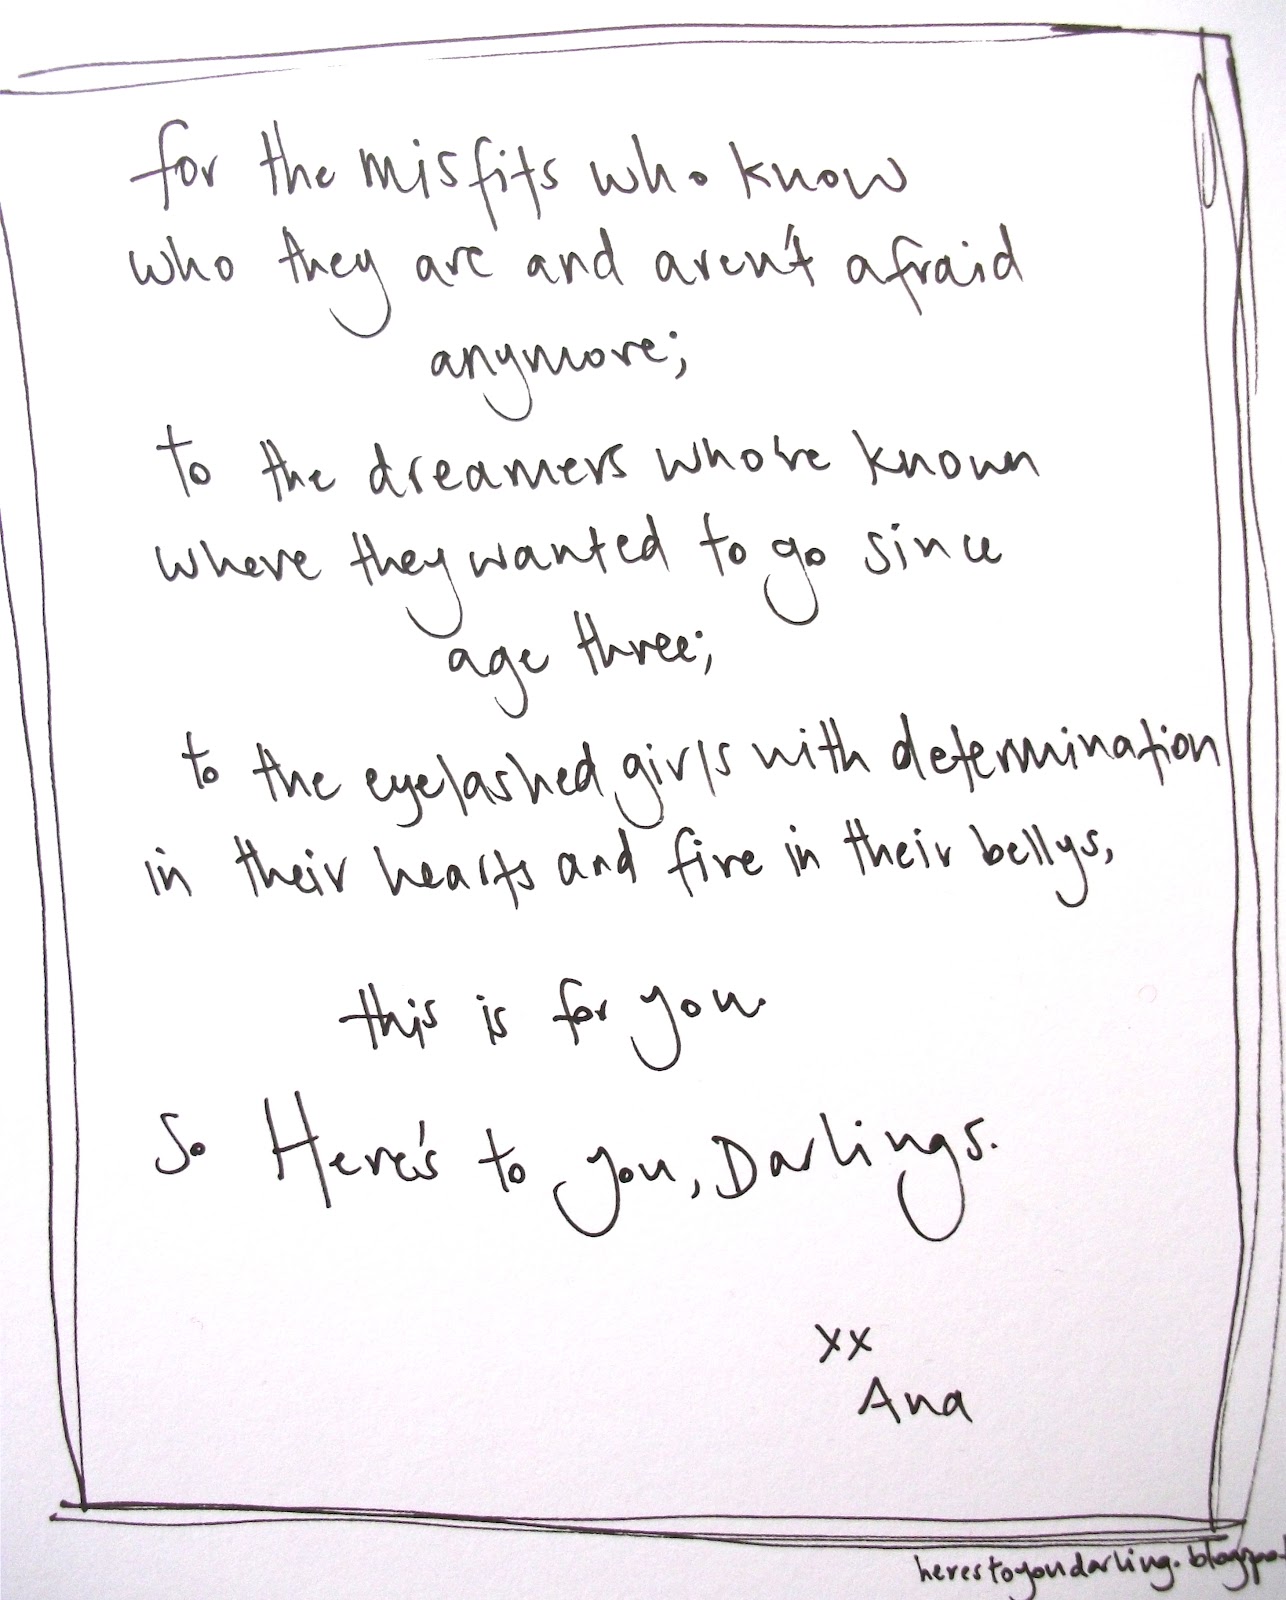 for the misfits who know
who they are and aren't afraid
anymore;
to the dreamers who've known
where they wanted to go since
age three;
to the eyelashed girls with determination
in their hearts and fire in their bellys,
this is for you.
So Here's to you, Darlings.
xx
Ana
herestoyoudarling.blogspo